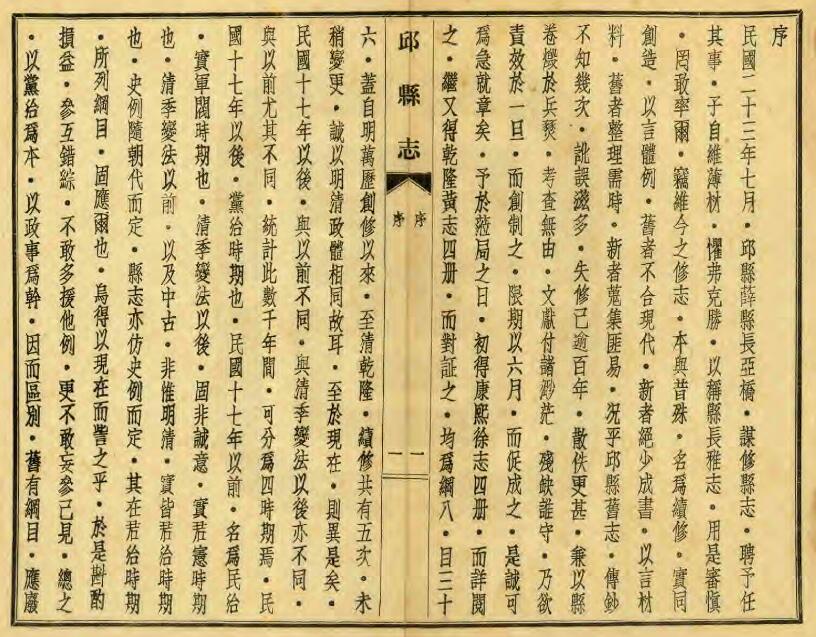 序
民國二十三年七月·邱縣薛縣長亞橋·謀修縣志·聘予任
其事·予自維薄材·懼弗克勝·以稱縣長雅志·用是審慎
·罔敢率爾·竊維今之修志·本與昔殊·名爲續修·實同
創造·以言體例·舊者不合現代·新者絕少成書·以言材
料·舊者整理需時·新者蒐集匪易·況乎邱縣舊志·傳鈔
不知幾次·訛誤滋多·失修已逾百年·散佚更甚·兼以縣
卷燬於兵燹·考查無由·文獻付諸渺茫·殘缺誰守·乃欲
責效於一旦·而創制之·限期以六月·而促成之·是誠可
爲急就章矣·予於蒞局之日·初得康熙徐志四册·而詳閱
之·繼又得乾隆黃志四册·而對証之·均爲綱八·目三十
邱縣志
序
一
序
一
六·蓋自明萬歷創修以來·至清乾隆·續修共有五次·未
稍變更·誠以明清政體相同故耳·至於現在·則異是矣·
民國十七年以後·與以前不同·與清季變法以後亦不同·
與以前尤其不同·統計此數千年間·可分爲四時期焉·民
國十七年以後·黨治時期也·民國十七年以前·名爲民治
·實軍閥時期也·清季變法以後·固非誠意·實君憲時期
也·清季變法以前·以及中古·非惟明清·實皆君治時期
也·史例隨朝代而定·縣志亦仿史例而定·其在君治時期
·所列綱目·固應爾也·烏得以現在而訾之乎·於是斟酌
損益·參互錯綜·不敢多援他例·更不敢妄參己見·總之
·以黨治爲本·以政事爲幹·因而區别·舊有綱目·應廢